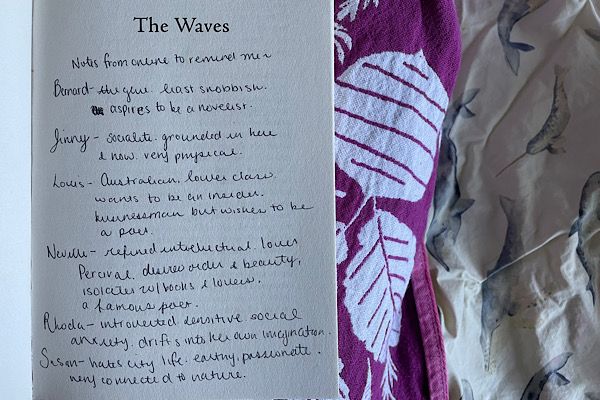 The Waves
Notes from online to remind me ~
Bernard - the glue. least snobbish.
aspires to be a novelist.
Jinny - socialite. grounded in here
& now. very physical.
Louis - Australian, lower class.
wants to be an insider.
businessman but wishes to be
a poet.
Neville - refined intellectual. loves
Percival. desires order & beauty,
isolates w/ books & lovers,
a famous poet.
Rhoda - introverted, sensitive, social
anxiety. drifts into her own imagination.
Susan - hates city life. earthy, passionate.
very connected to nature.